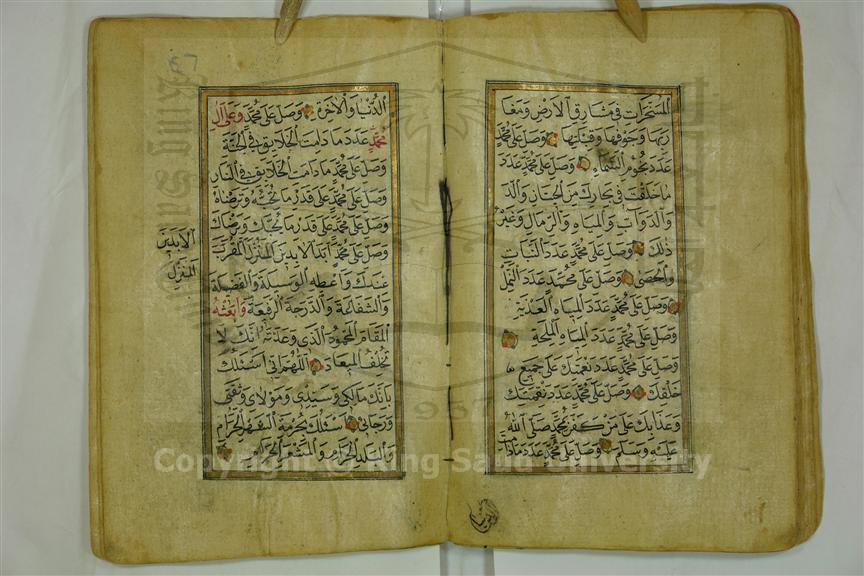 المسخرات في مشارق الارض ومغا
ربها وجوفها وقبلتها وصل على محمد
عدد نجوم السماء وصل على محمد عدد
ما خلقت في بحارك من الحيتان والد
والدواب والمياه والرمال وغير
ذلك وصل على محمد عدد النبات
والحصى وصل على محمد عدد النمل
وصل على محمد عدد المياه العذبة
وصل على محمد عدد المياه الملحة
وصل على محمد عدد نعمتك على جميع
خلقك وصل على محمد عدد نقمتك
وعذابك على من كفر بمحمد صلى الله
عليه وسلم وصل على محمد عدد مادا
الدنيا
الدنيا والاخرة وصل على محمد وعلى ال
محمد عدد ما دامت الخلايق في الجنة
وصل على محمد ما دامت الخلايق في النار
وصل على محمد على قدر ما تحبه وترضاه
وصل على محمد على قدر ما يحبك ويرضاك
وصل على محمد ابد الابدين المنزل المقرب
عندك واعطه الوسيلة والفضيلة
والشفاعة والدرجة الرفيعة وابعثه
المقام المحمود الذي وعدته انك لا
تخلف الميعاد اللهم اني اسئلك
بانك مالكي وسيدي ومولاي وثقتي
ورجائي اسئلك بحرمة الشهر الحرام
والبلد الحرام والمشعر الحرام
الابدين
المنزل
Copyright © King Saud University
1957